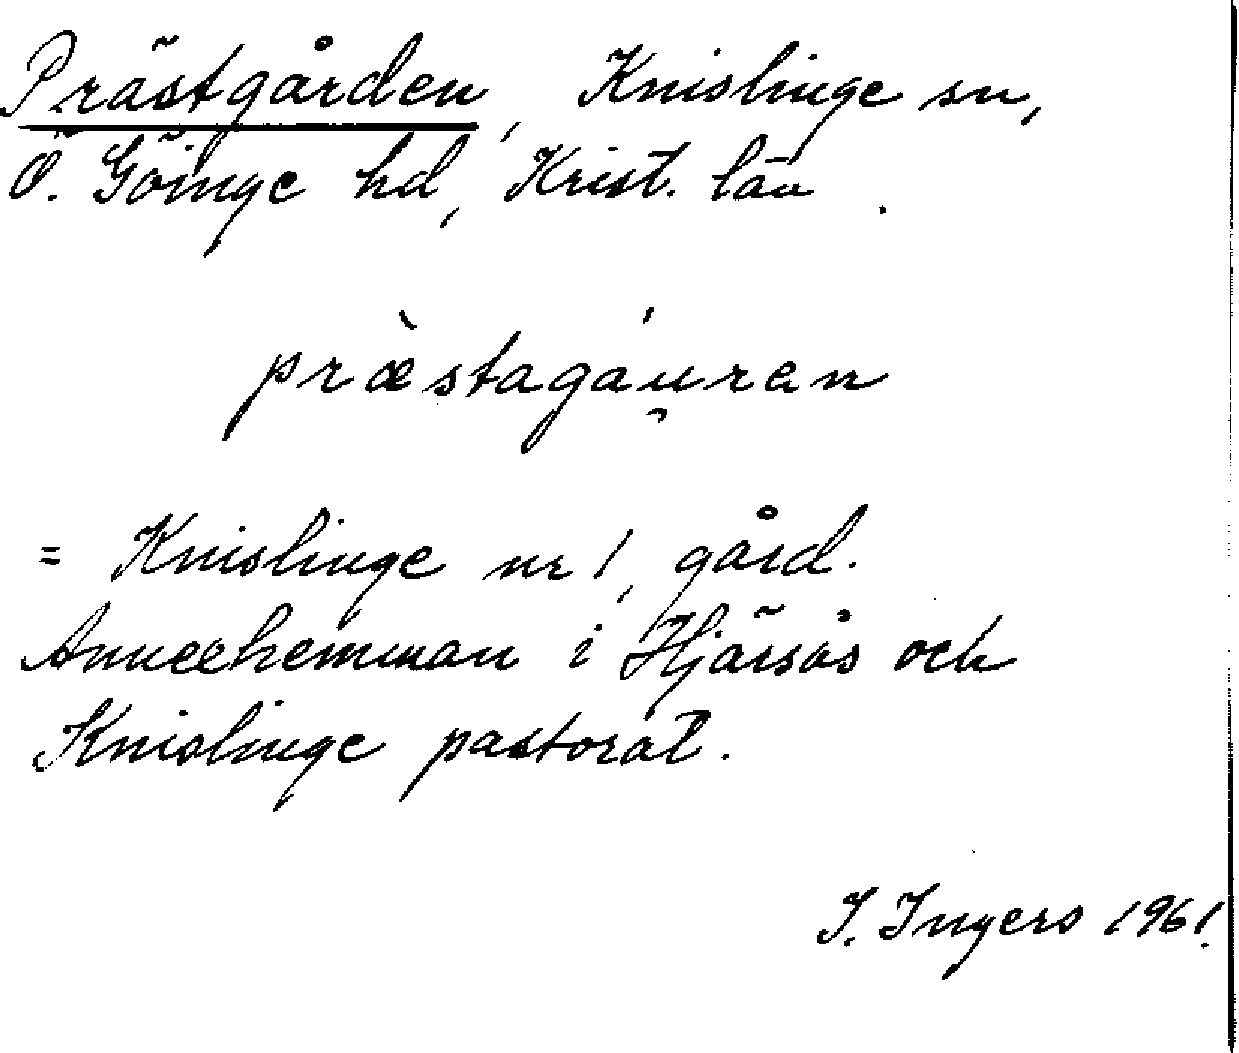 Prästgården, Knislinge sn,
Ö. Göinge hd, Krist. län.
præ̀stagáu̯ren
= Knislinge nr 1, gård.
Annexhemman i Hjärsås och
Knislinge pastorat.
I. Ingers 1961.